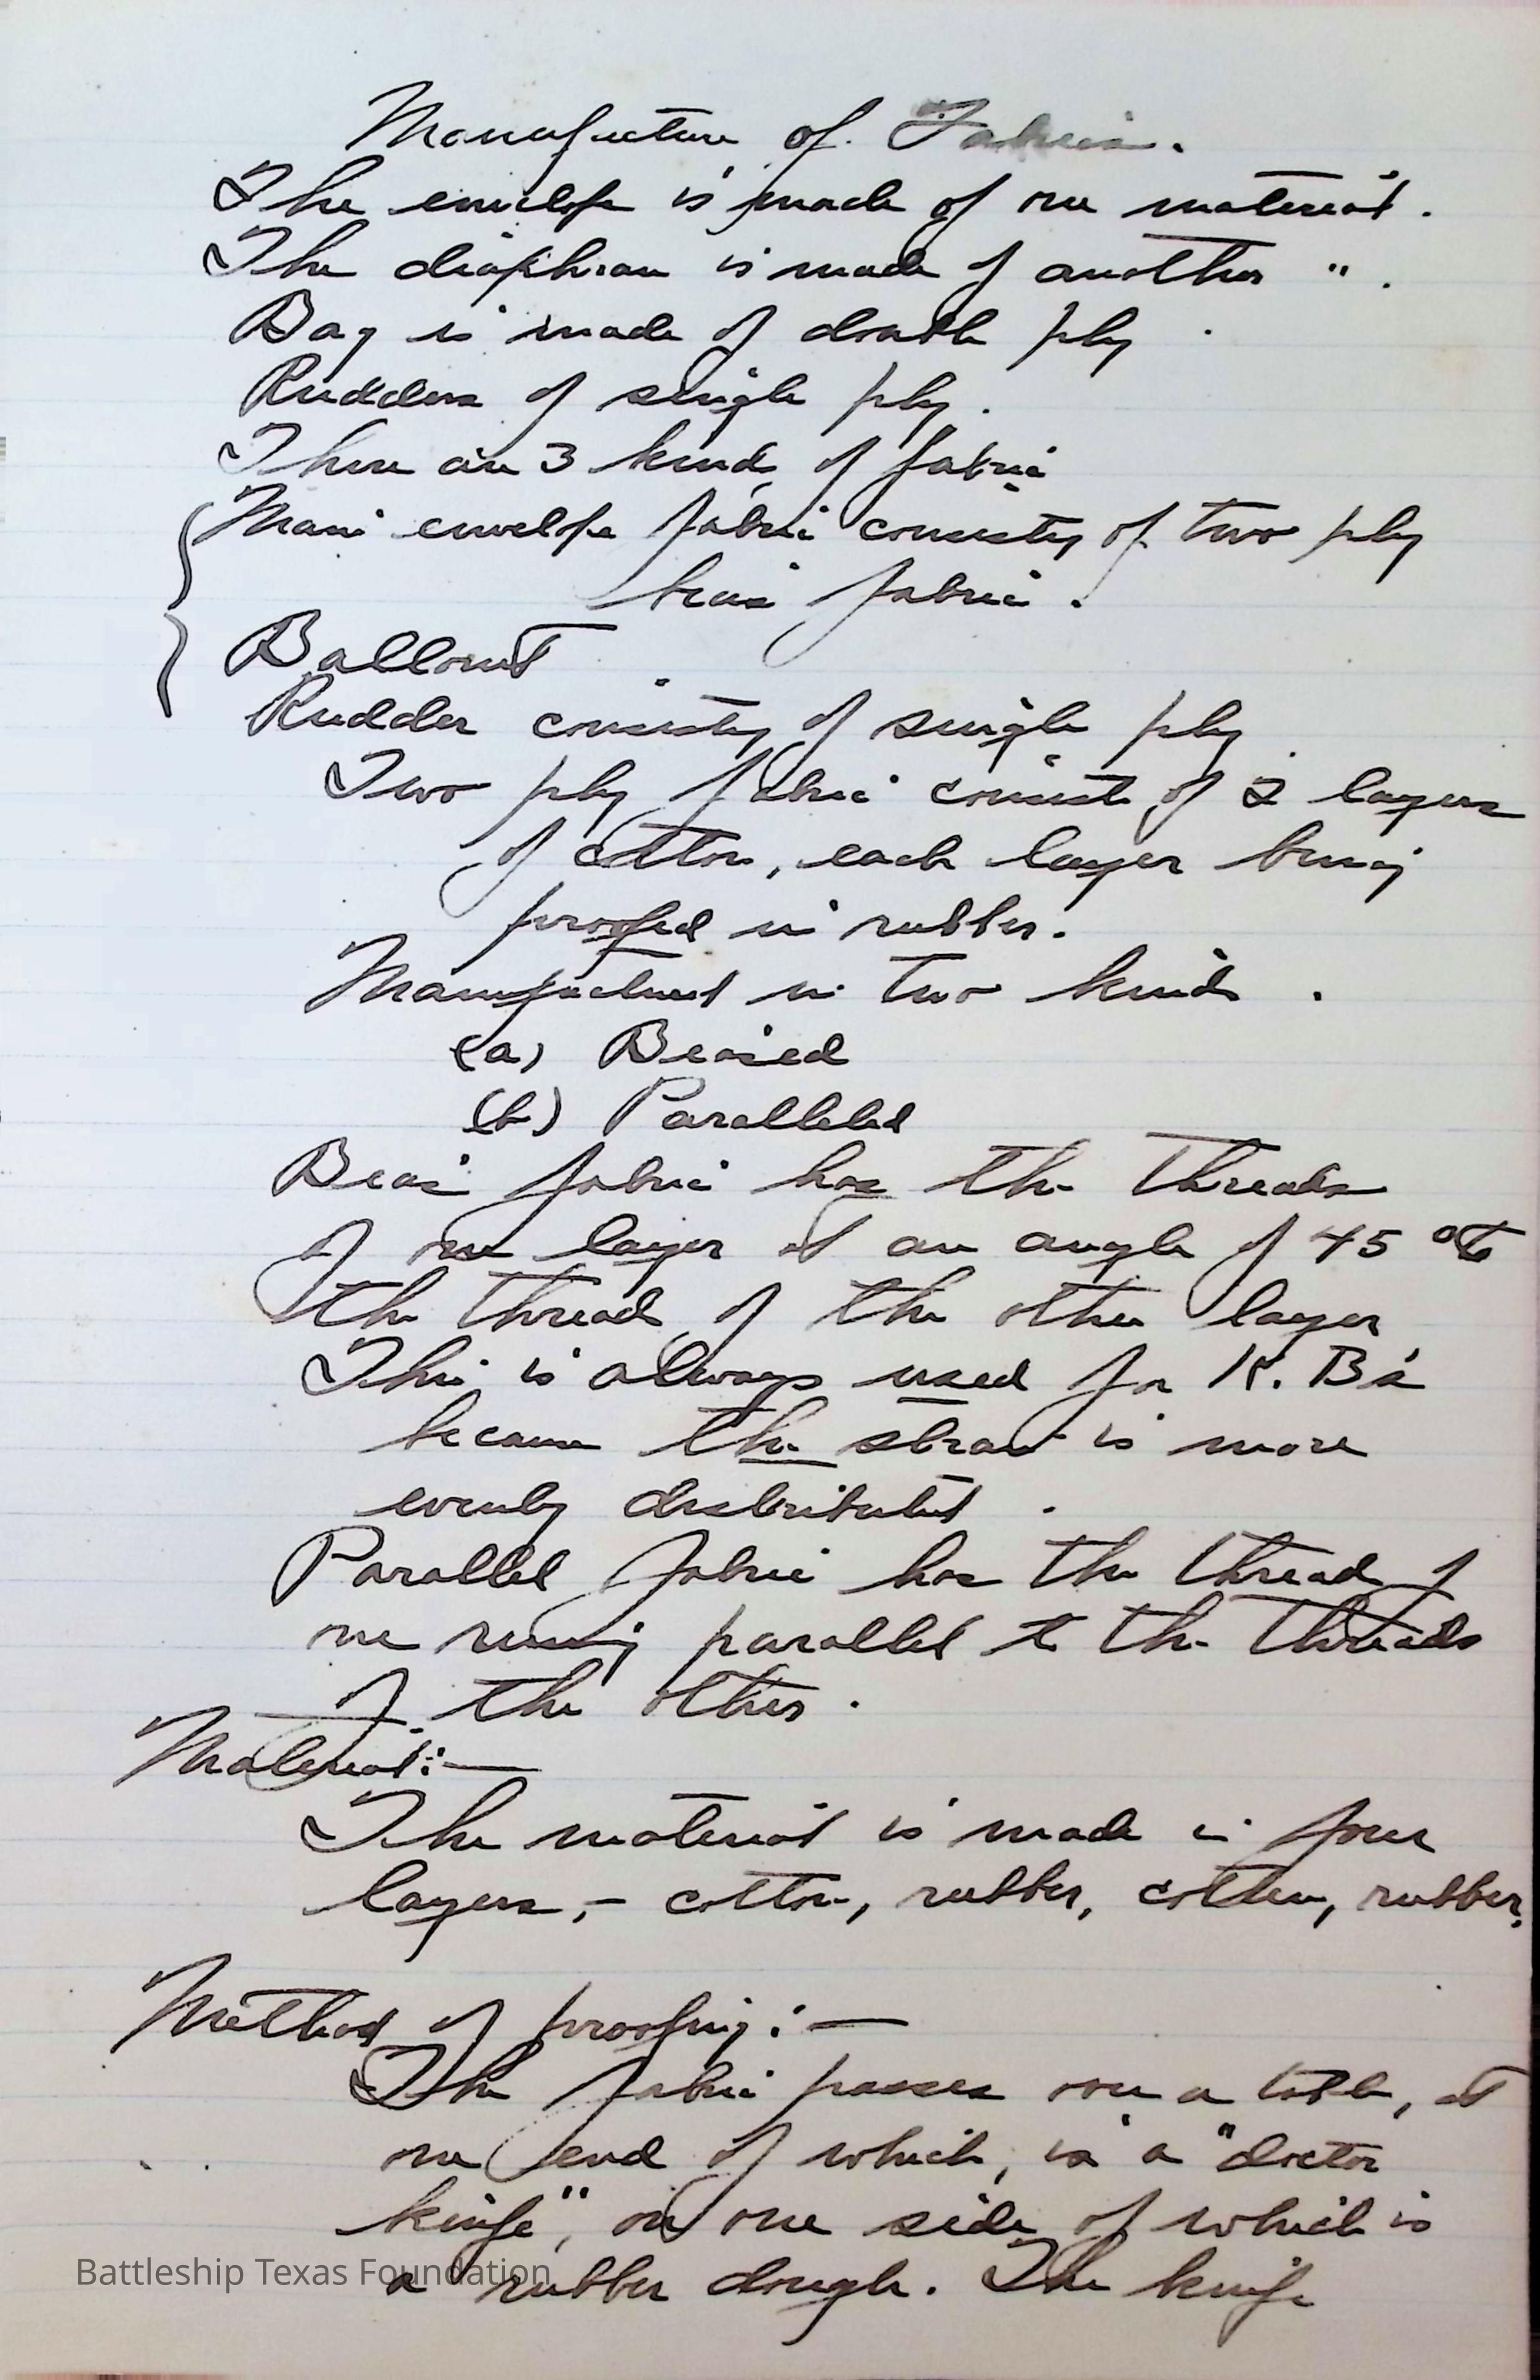 Manufacture of Fabric.
The envelope is made of one material.
The diaphram is made of another " .
Bag is made of double ply.
Rudders of single ply.
There are 3 kinds of fabric
Main envelope fabric consists of two ply
bias fabric.
Ballonet
Rudder consists of single ply
Two ply fabric consist of 2 layers
of cotton, each layer being
proofed in rubber.
Manufactured in two kinds.
(a) Beased
(b) Paralleled
Beas fabric has the threads
of one layer at an angle of 45° to
the threads of the other layer
This is always used for K. B's
because the strain is more
evenly distributed.
Parallel fabric has the threads of
one runing parallel to the threads
of the other.
Material:—
The material is made in four
layers,- cotton, rubber, cotton, rubber.
Method of proofing:—
The fabric passes over a table, at
one end of which, is a "doctor
knife", on one side of which is
a rubber dough. The knife
Battleship Texas Foundation